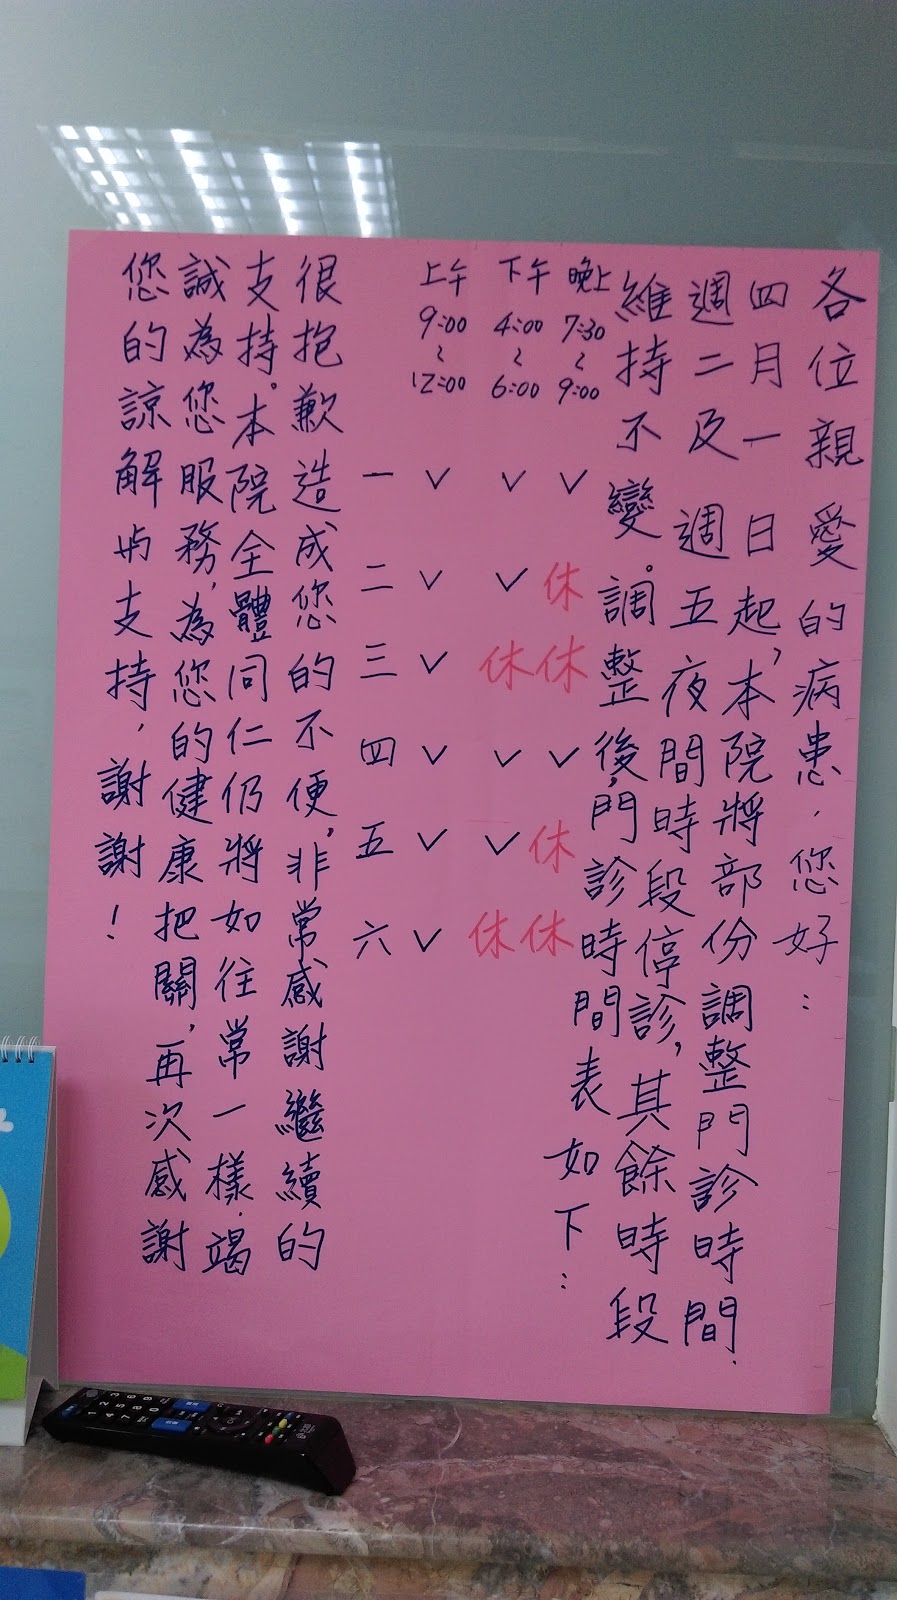 各位親愛的病患，您好：
四月一日起，本院將部份調整門診時間．
週二及週五夜間時段停診，其餘時段
維持不變。調整後，門診時間表如下：
上午 下午 晚上
9:00～12:00 4:00～6:00 7:30～9:00
一 ✓ ✓ ✓
二 ✓ ✓ 休
三 ✓ 休 休
四 ✓ ✓ ✓
五 ✓ ✓ 休
六 ✓ 休 休
很抱歉造成您的不便，非常感謝繼續的
支持。本院全體同仁仍將如往常一樣，竭
誠為您服務，為您的健康把關，再次感謝
您的諒解與支持，謝謝！